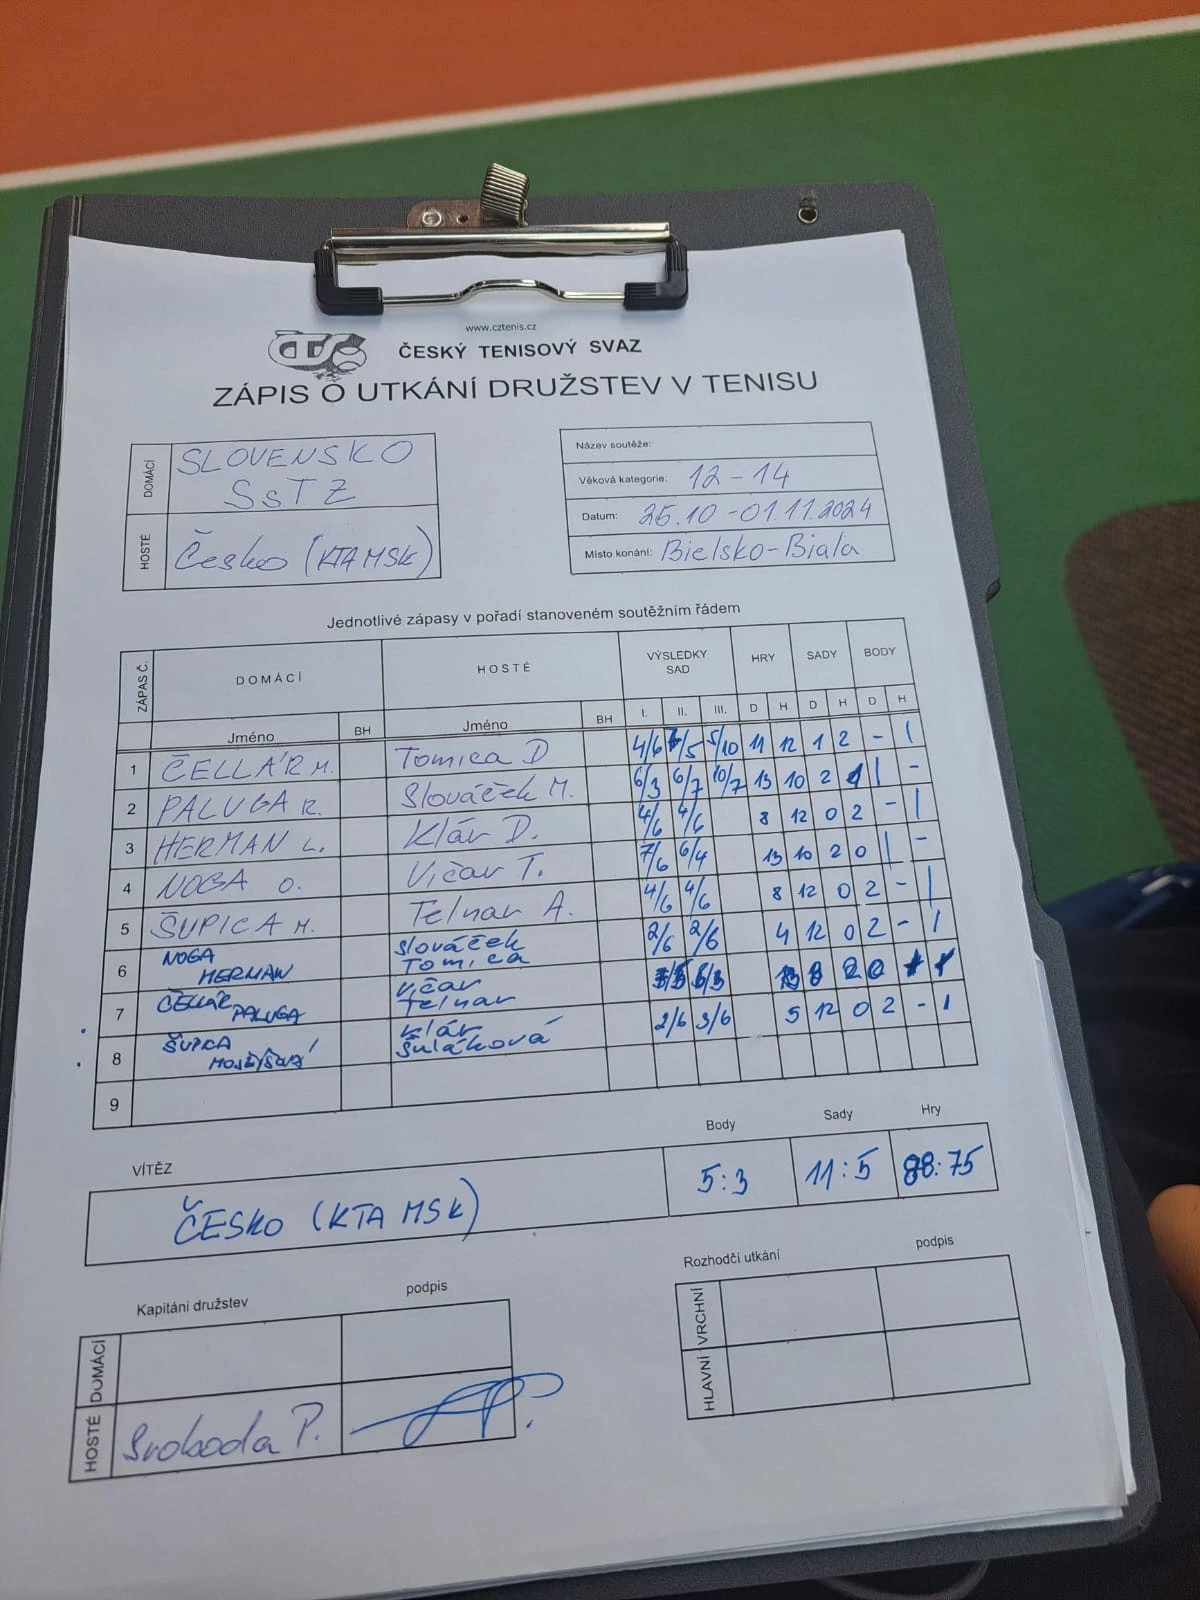 www.cztenis.cz
ČTS ČESKÝ TENISOVÝ SVAZ
ZÁPIS O UTKÁNÍ DRUŽSTEV V TENISU
DOMÁCÍ SLOVENSKO
SsTZ
HOSTÉ Česko (KTA MSK)
Název soutěže:
Věková kategorie: 12 - 14
Datum: 25.10 - 01.11.2024
Místo konání: Bielsko-Biala
Jednotlivé zápasy v pořadí stanoveném soutěžním řádem
ZÁPAS Č. DOMÁCÍ HOSTÉ VÝSLEDKY SAD HRY SADY BODY
Jméno BH Jméno BH I. II. III. D H D H D H
1 ČELLÁR M. Tomica D 4/6 /5 5/10 11 12 1 2 - 1
2 PALUGA R. Slováček M. 6/3 6/7 10/7 13 10 2 1 1 -
3 HERMAN L. Klár D. 4/6 4/6 8 12 0 2 - 1
4 NOGA O. Vičar T. 7/6 6/4 13 10 2 0 1 -
5 ŠUPICA M. Telnar A. 4/6 4/6 8 12 0 2 - 1
6 NOGA HERMAN Slováček Tomica 2/6 2/6 4 12 0 2 - 1
7 ČELLÁR PALUGA Vičar Telnar 8 0
8 ŠUPICA Klár Šuláková 2/6 3/6 5 12 0 2 - 1
9
Body Sady Hry
VÍTĚZ
ČESKO (KTA MSK) 5:3 11:5 88:75
Kapitáni družstev podpis
DOMÁCÍ
HOSTÉ Svoboda P.
Rozhodčí utkání podpis
VRCHNÍ
HLAVNÍ